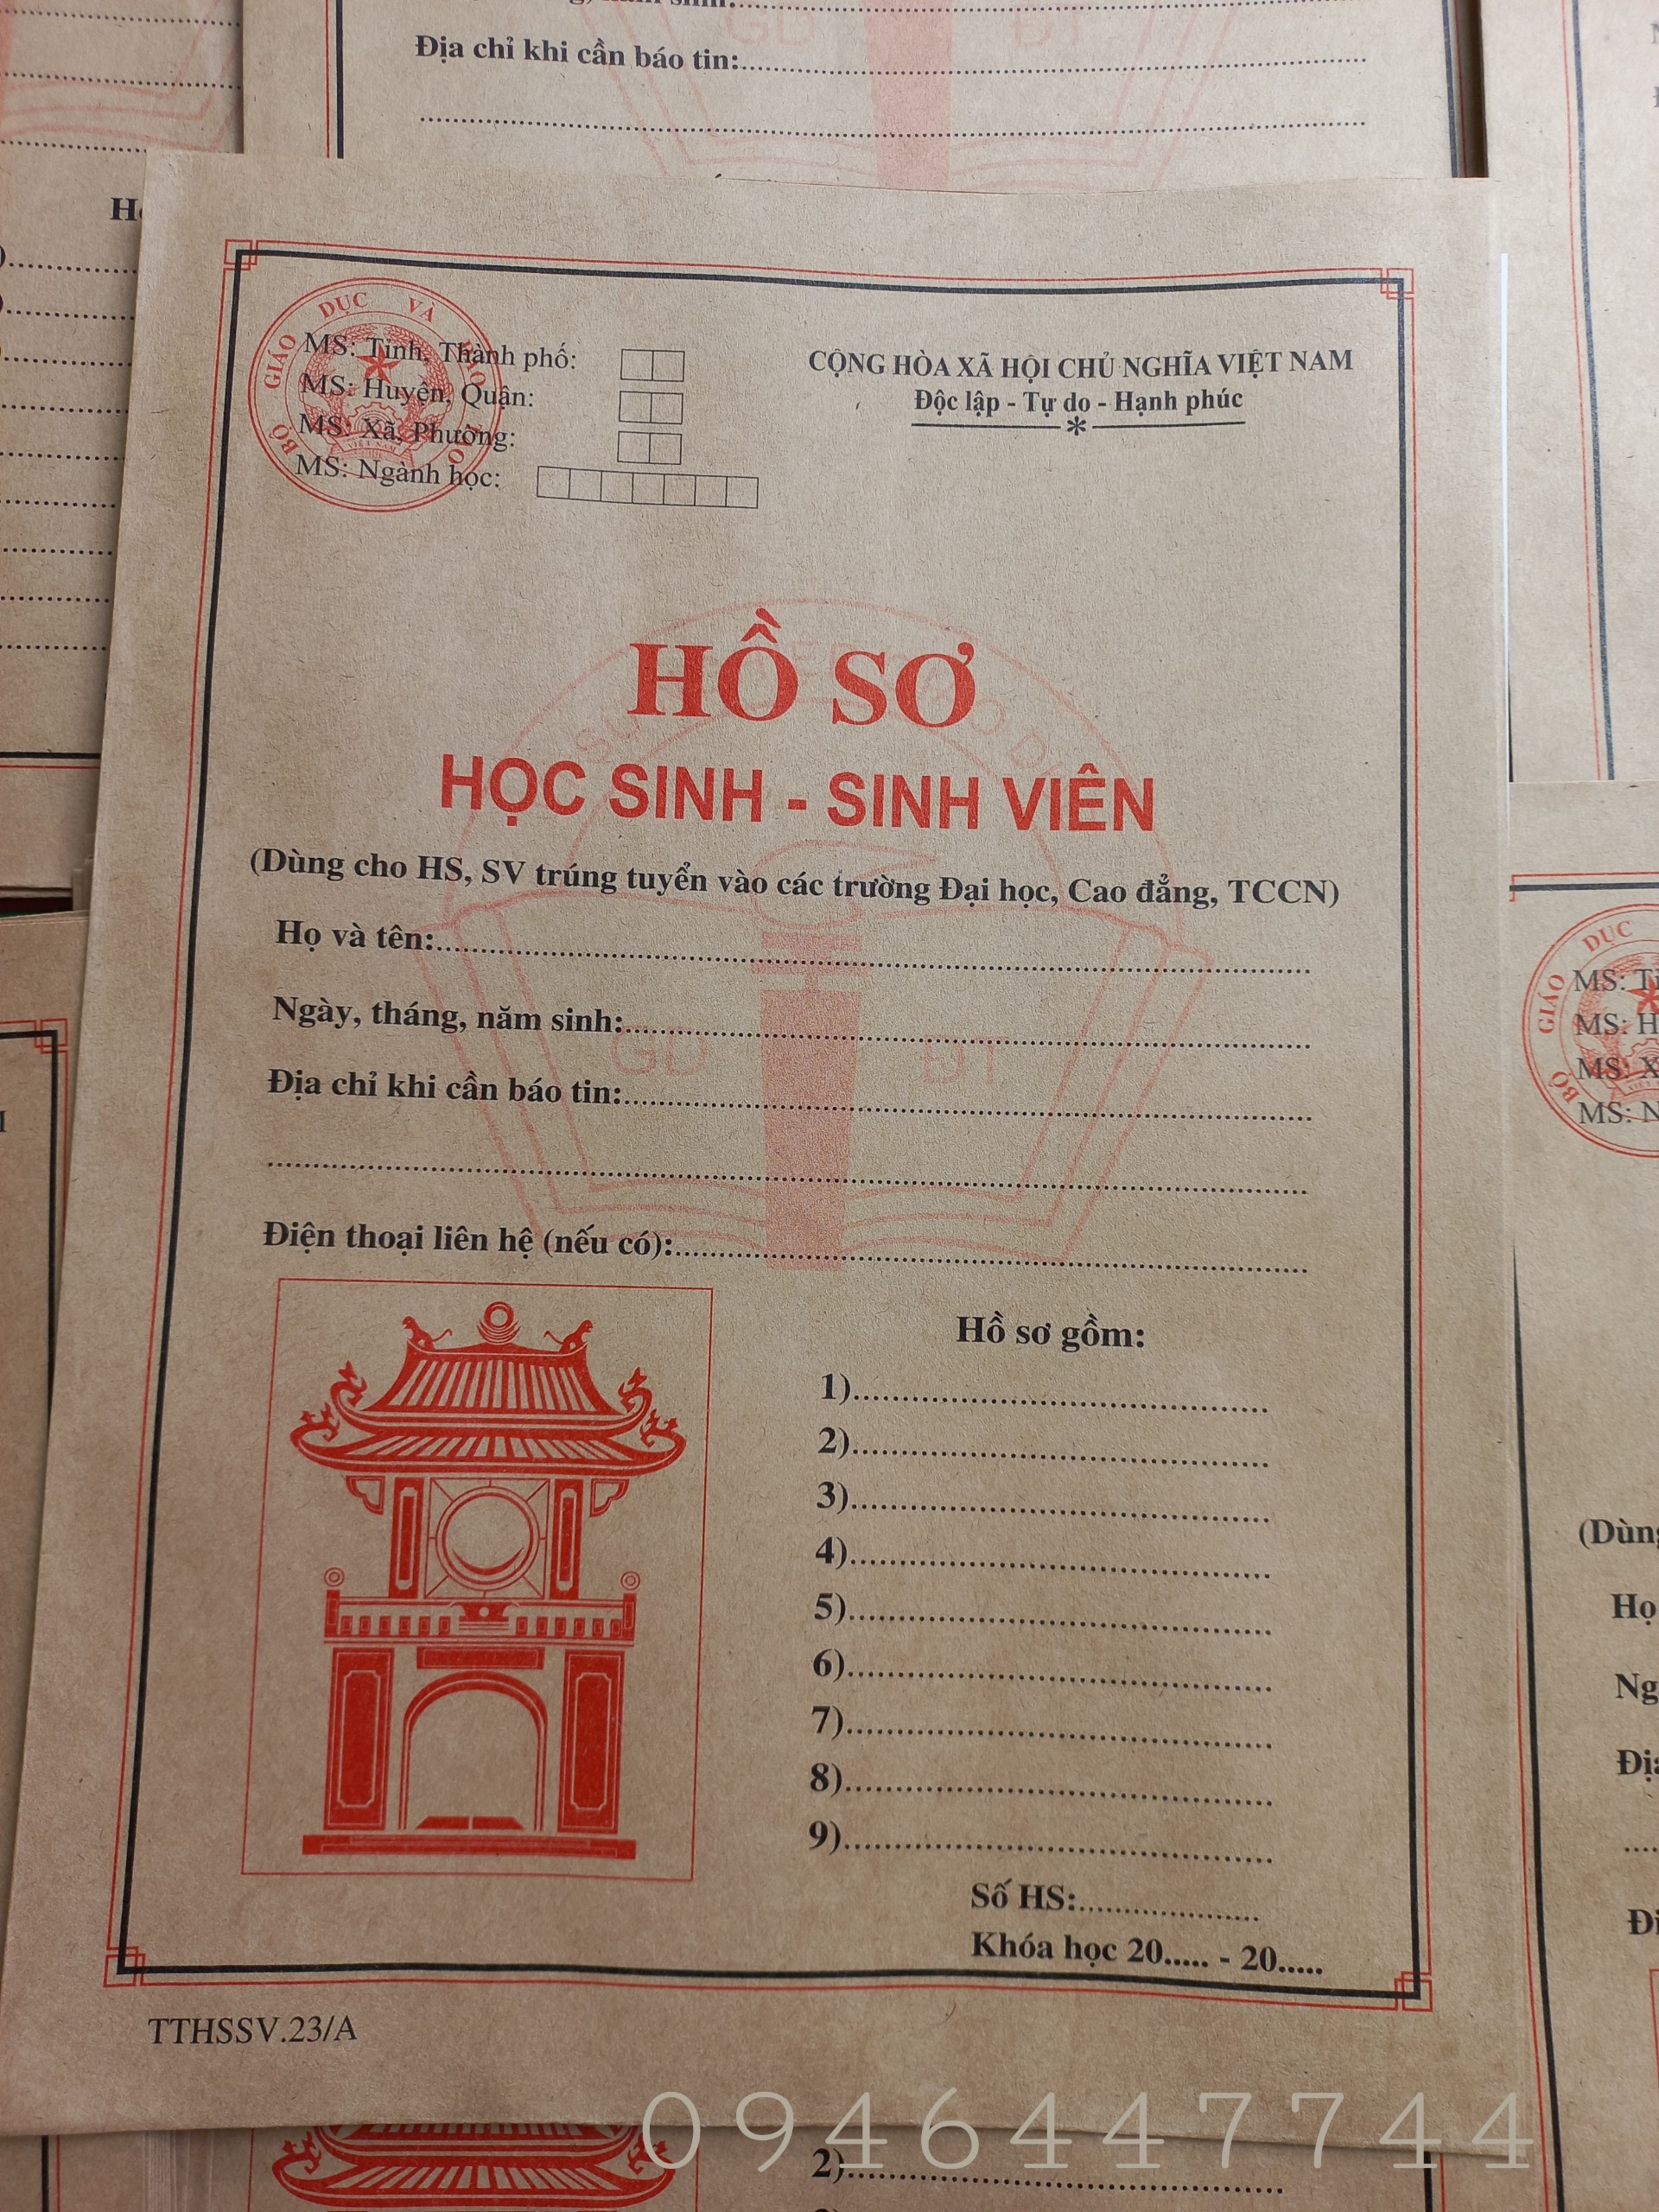 Địa chỉ khi cần báo tin:
BỘ GIÁO DỤC VÀ ĐÀO TẠO
MS: Tỉnh, Thành phố:
MS: Huyện, Quận:
MS: Xã, Phường:
MS: Ngành học:
VIỆT NAM
CỘNG HÒA XÃ HỘI CHỦ NGHĨA VIỆT NAM
Độc lập - Tự do - Hạnh phúc
HỒ SƠ
HỌC SINH - SINH VIÊN
(Dùng cho HS, SV trúng tuyển vào các trường Đại học, Cao đẳng, TCCN)
Họ và tên:
Ngày, tháng, năm sinh:
GD ĐT
Địa chỉ khi cần báo tin:
Điện thoại liên hệ (nếu có):
Hồ sơ gồm:
1)
2)
3)
4)
5)
6)
7)
8)
9)
Số HS:
Khóa học 20..... - 20.....
TTHSSV.23/A
DỤC
GIÁO
BỘ
MS: Tỉ
MS: H
MS: X
MS: N
(Dùng
Họ
Ng
Địa
Đi
2)
0946447744